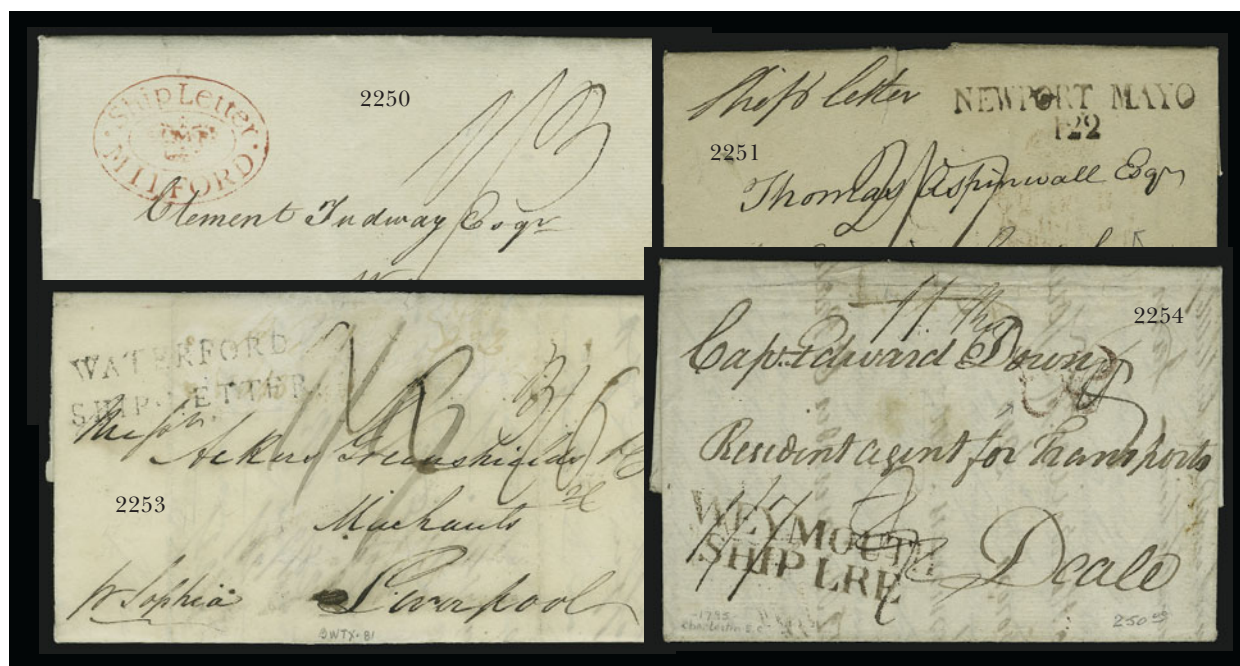 Ship Letter
MILFORD
2250
1/3
Clement Tudway Esqr
Ship letter
NEWPORT MAYO
122
2251
Thomas Aspinwall Esqr
WATERFORD
SHIP LETTER
Messrs
Greenshields
2253
Merchants
pr Sophia
Liverpool
BWTX-81
2254
Capt. Edward Down
Resident agent for Transports
WEYMOUTH
SHIP LRE
Deale
1795
Charleston S.C.
250